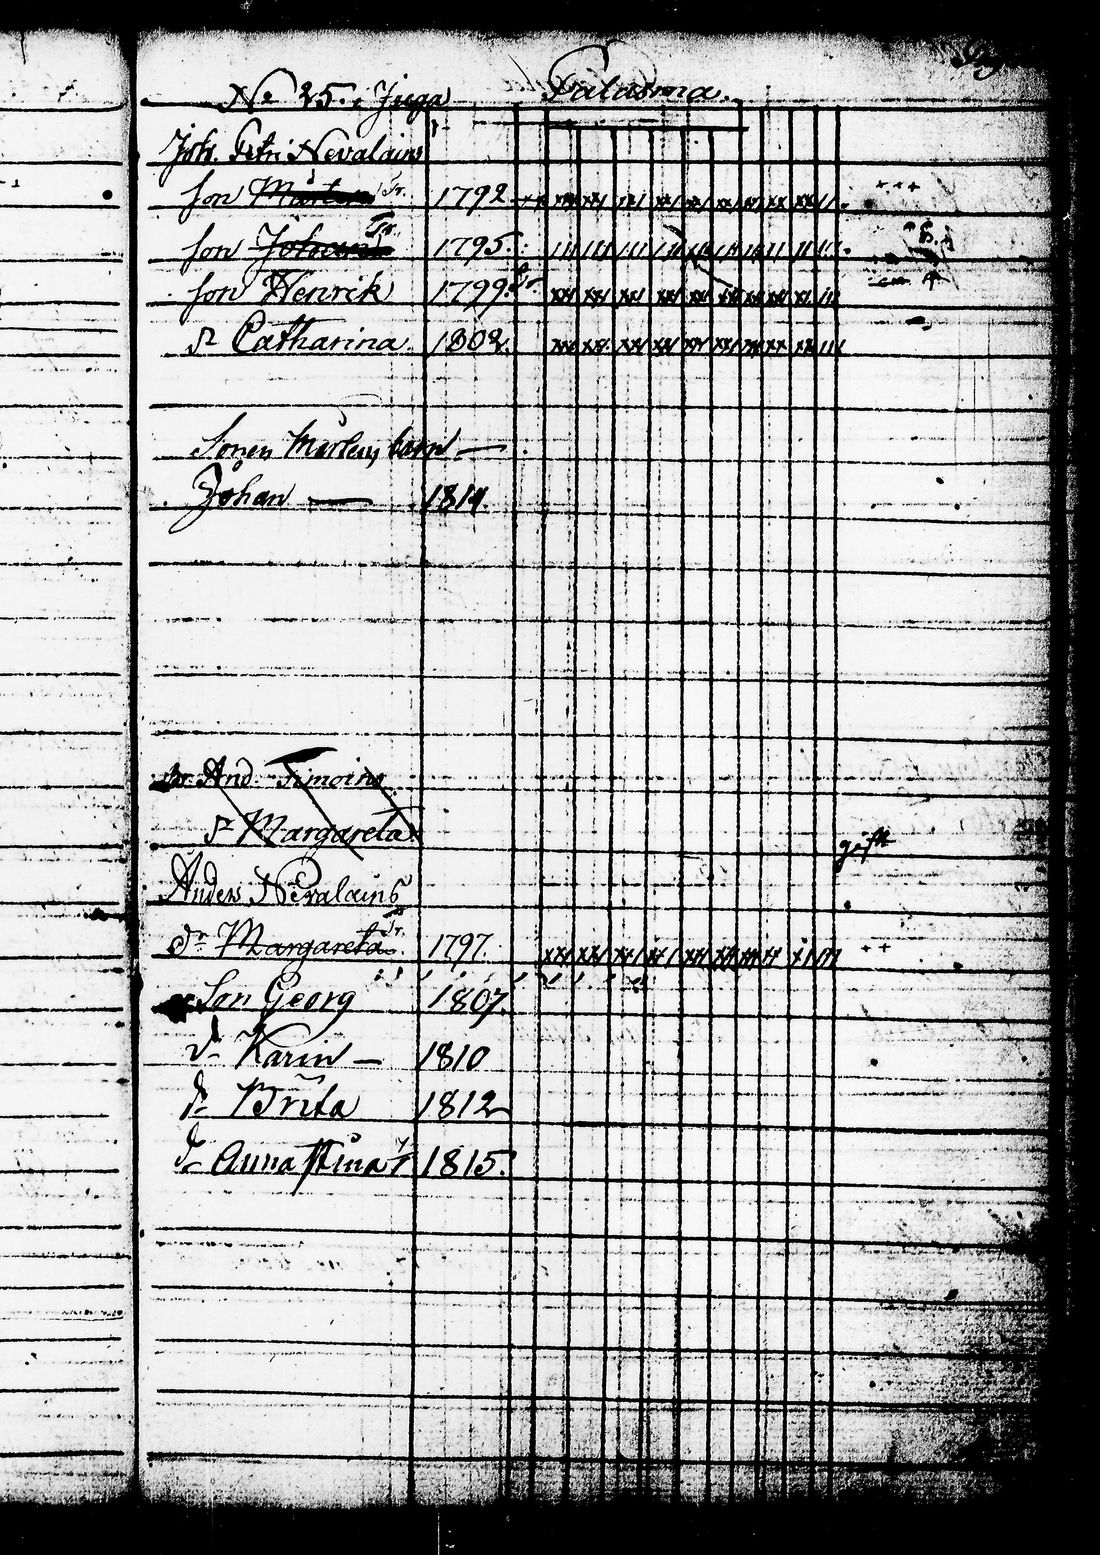 No 25. Juga Palasma.
Joh. Petri Nevalains
Son Mårten 1792
Son Johan 1795.
Son Henrik 1799.
Dr Catharina 1802.
Sonen Mårtens barn —
Johan — 1814.
And. Simoins
Dr Margareta
gift
Anders Nevalains
Dr Margareta 1797.
Son Georg 1807.
dr Karin — 1810
dr Brita 1812
dr Anna Stina 1815.